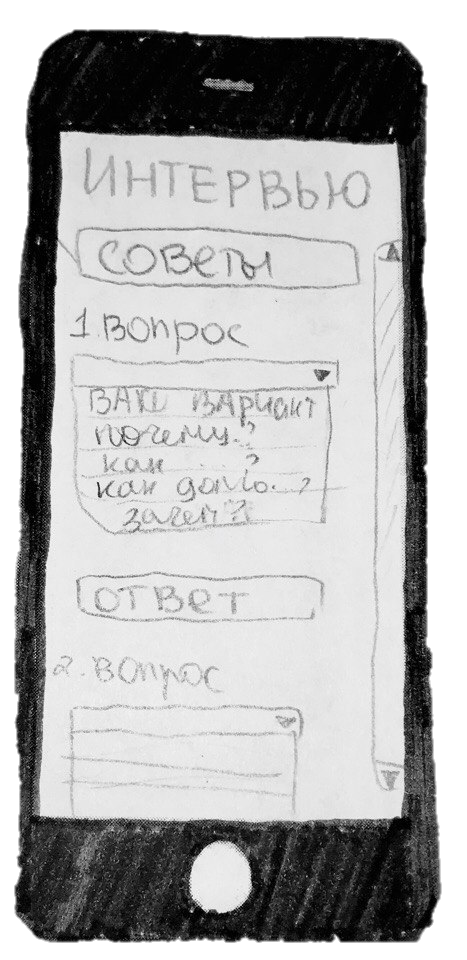 ИНТЕРВЬЮ
советы
1. Вопрос
ВАШ ВАРИАНТ
почему..?
как ... ?
как долго..?
зачем?
ответ
2. Вопрос